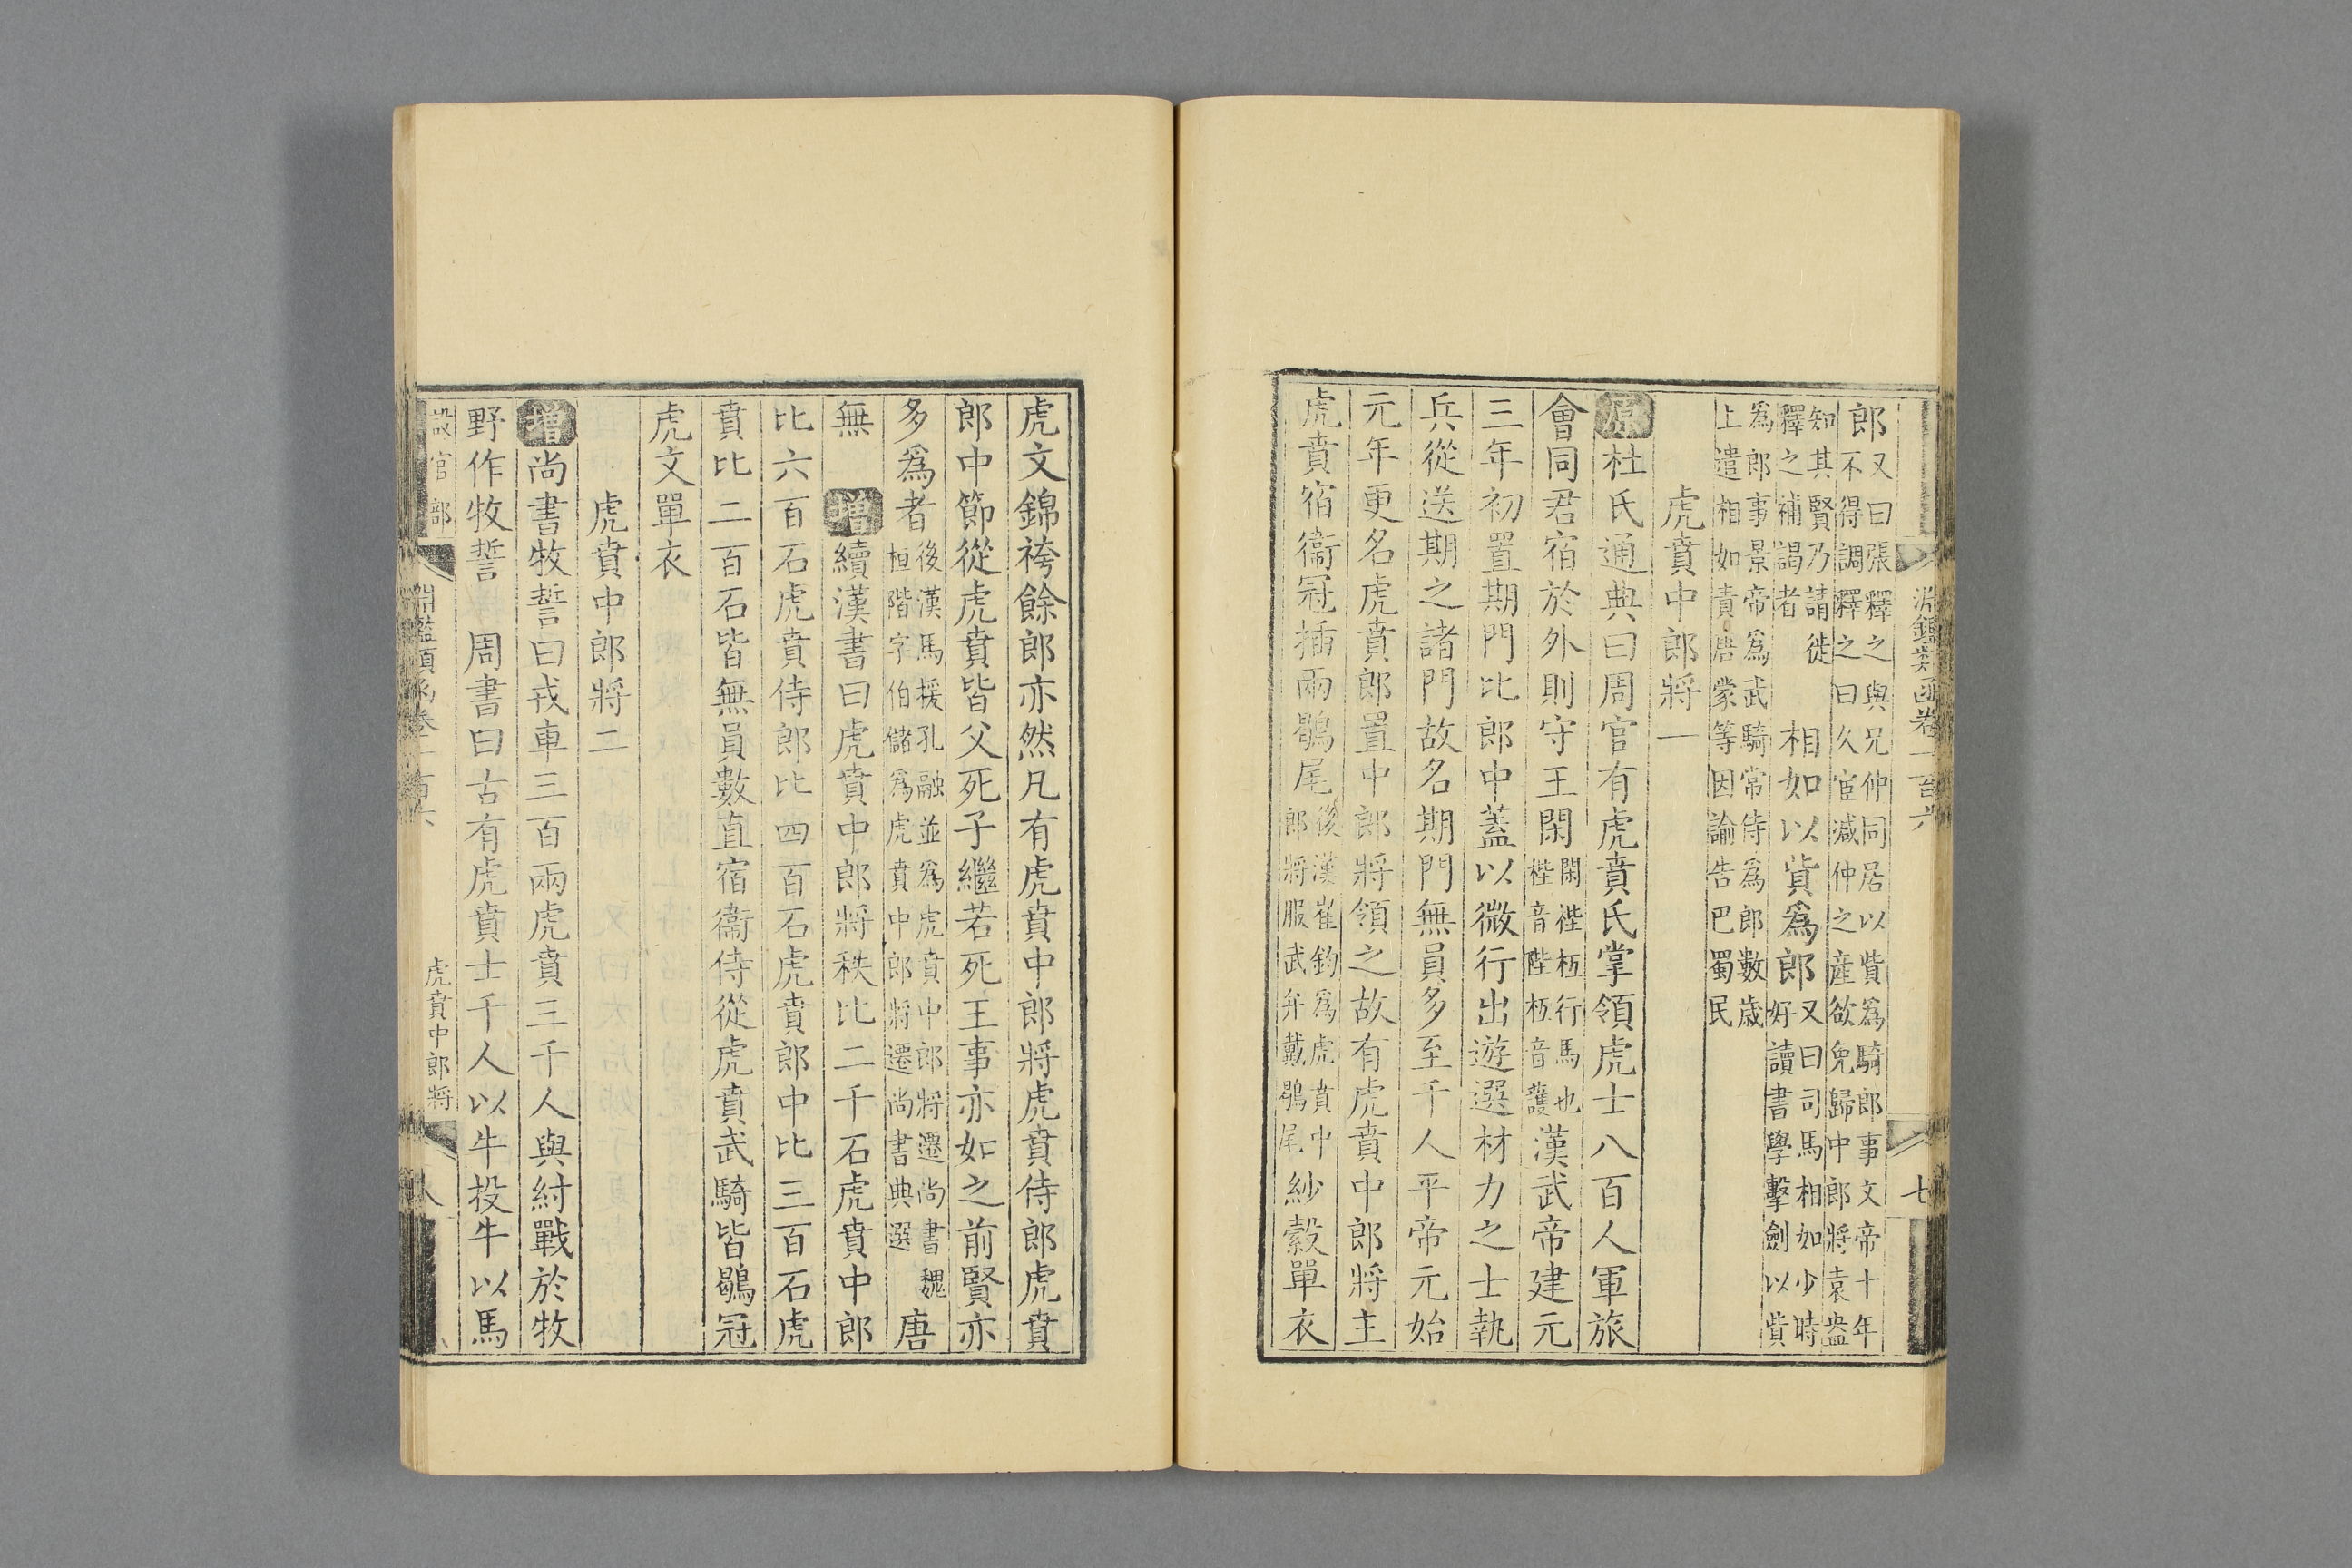 淵鑑類函卷一百六 七
郎又曰張釋之與兄仲同居以貲爲騎郎事文帝十年不得調釋之曰久宦减仲之產欲免歸中郎將袁盎
知其賢乃請徙釋之補謁者 相如以貲爲郎又曰司馬相如少時好讀書學擊劍以貲
爲郎事景帝爲武騎常侍爲郎數歲上遣相如責唐蒙等因諭告巴蜀民
虎賁中郎將一
原杜氏通典曰周官有虎賁氏掌領虎士八百人軍旅
會同君宿於外則守王閑閑梐枑行馬也梐音陛枑音護漢武帝建元
三年初置期門比郎中蓋以微行出遊選材力之士執
兵從送期之諸門故名期門無員多至千人平帝元始
元年更名虎賁郎置中郎將領之故有虎賁中郎將主
虎賁宿衞冠插兩鶡尾後漢崔鈞爲虎賁中郎將服武弁戴鶡尾紗縠單衣
虎文錦袴餘郎亦然凡有虎賁中郎將虎賁侍郎虎賁
郎中節從虎賁皆父死子繼若死王事亦如之前賢亦
多爲者後漢馬援孔融並爲虎賁中郎將遷尚書魏桓階字伯儲爲虎賁中郎將遷尚書典選唐
無 增續漢書曰虎賁中郎將秩比二千石虎賁中郎
比六百石虎賁侍郎比四百石虎賁郎中比三百石虎
賁比二百石皆無員數直宿衞侍從虎賁武騎皆鶡冠
虎文單衣
虎賁中郎將二
增尚書牧誓曰戎車三百兩虎賁三千人與紂戰於牧
野作牧誓 周書曰古有虎賁士千人以牛投牛以馬
設官部 淵鑑類函卷一百六 虎賁中郎將 八